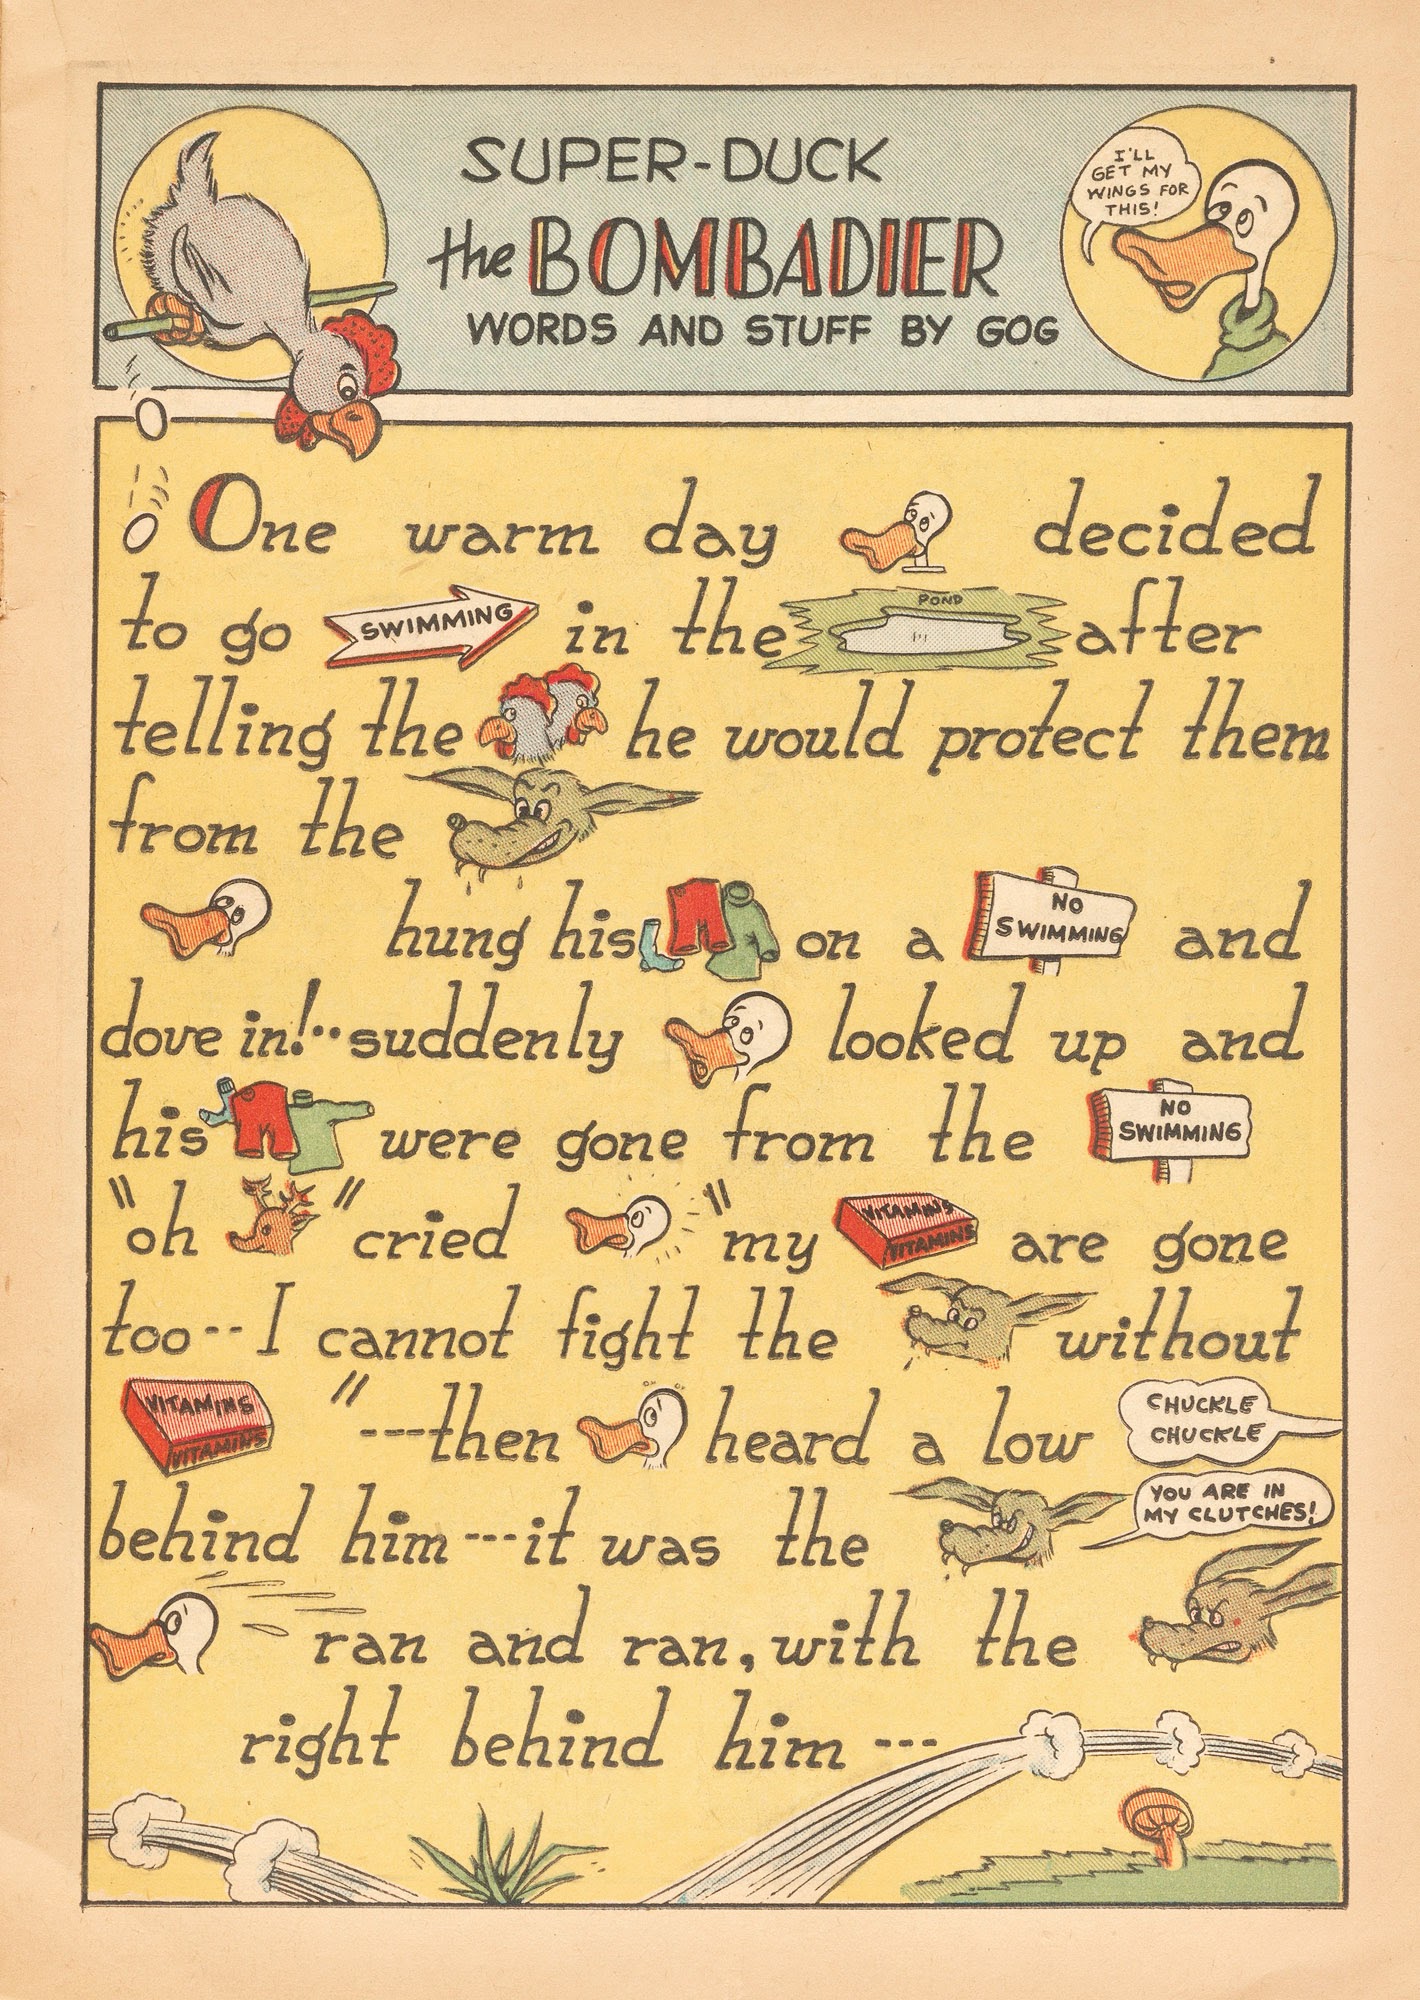 SUPER-DUCK
the BOMBADIER
WORDS AND STUFF BY GOG
I'LL
GET MY
WINGS FOR
THIS!
One warm day decided
to go SWIMMING in the POND after
telling the he would protect them
from the
hung his on a NO SWIMMING and
dove in!--suddenly looked up and
his were gone from the NO SWIMMING
"oh " cried "my VITAMINS VITAMINS are gone
too-- I cannot fight the without
VITAMINS VITAMINS " ---then heard a low CHUCKLE CHUCKLE
behind him---it was the YOU ARE IN MY CLUTCHES!
ran and ran, with the
right behind him---